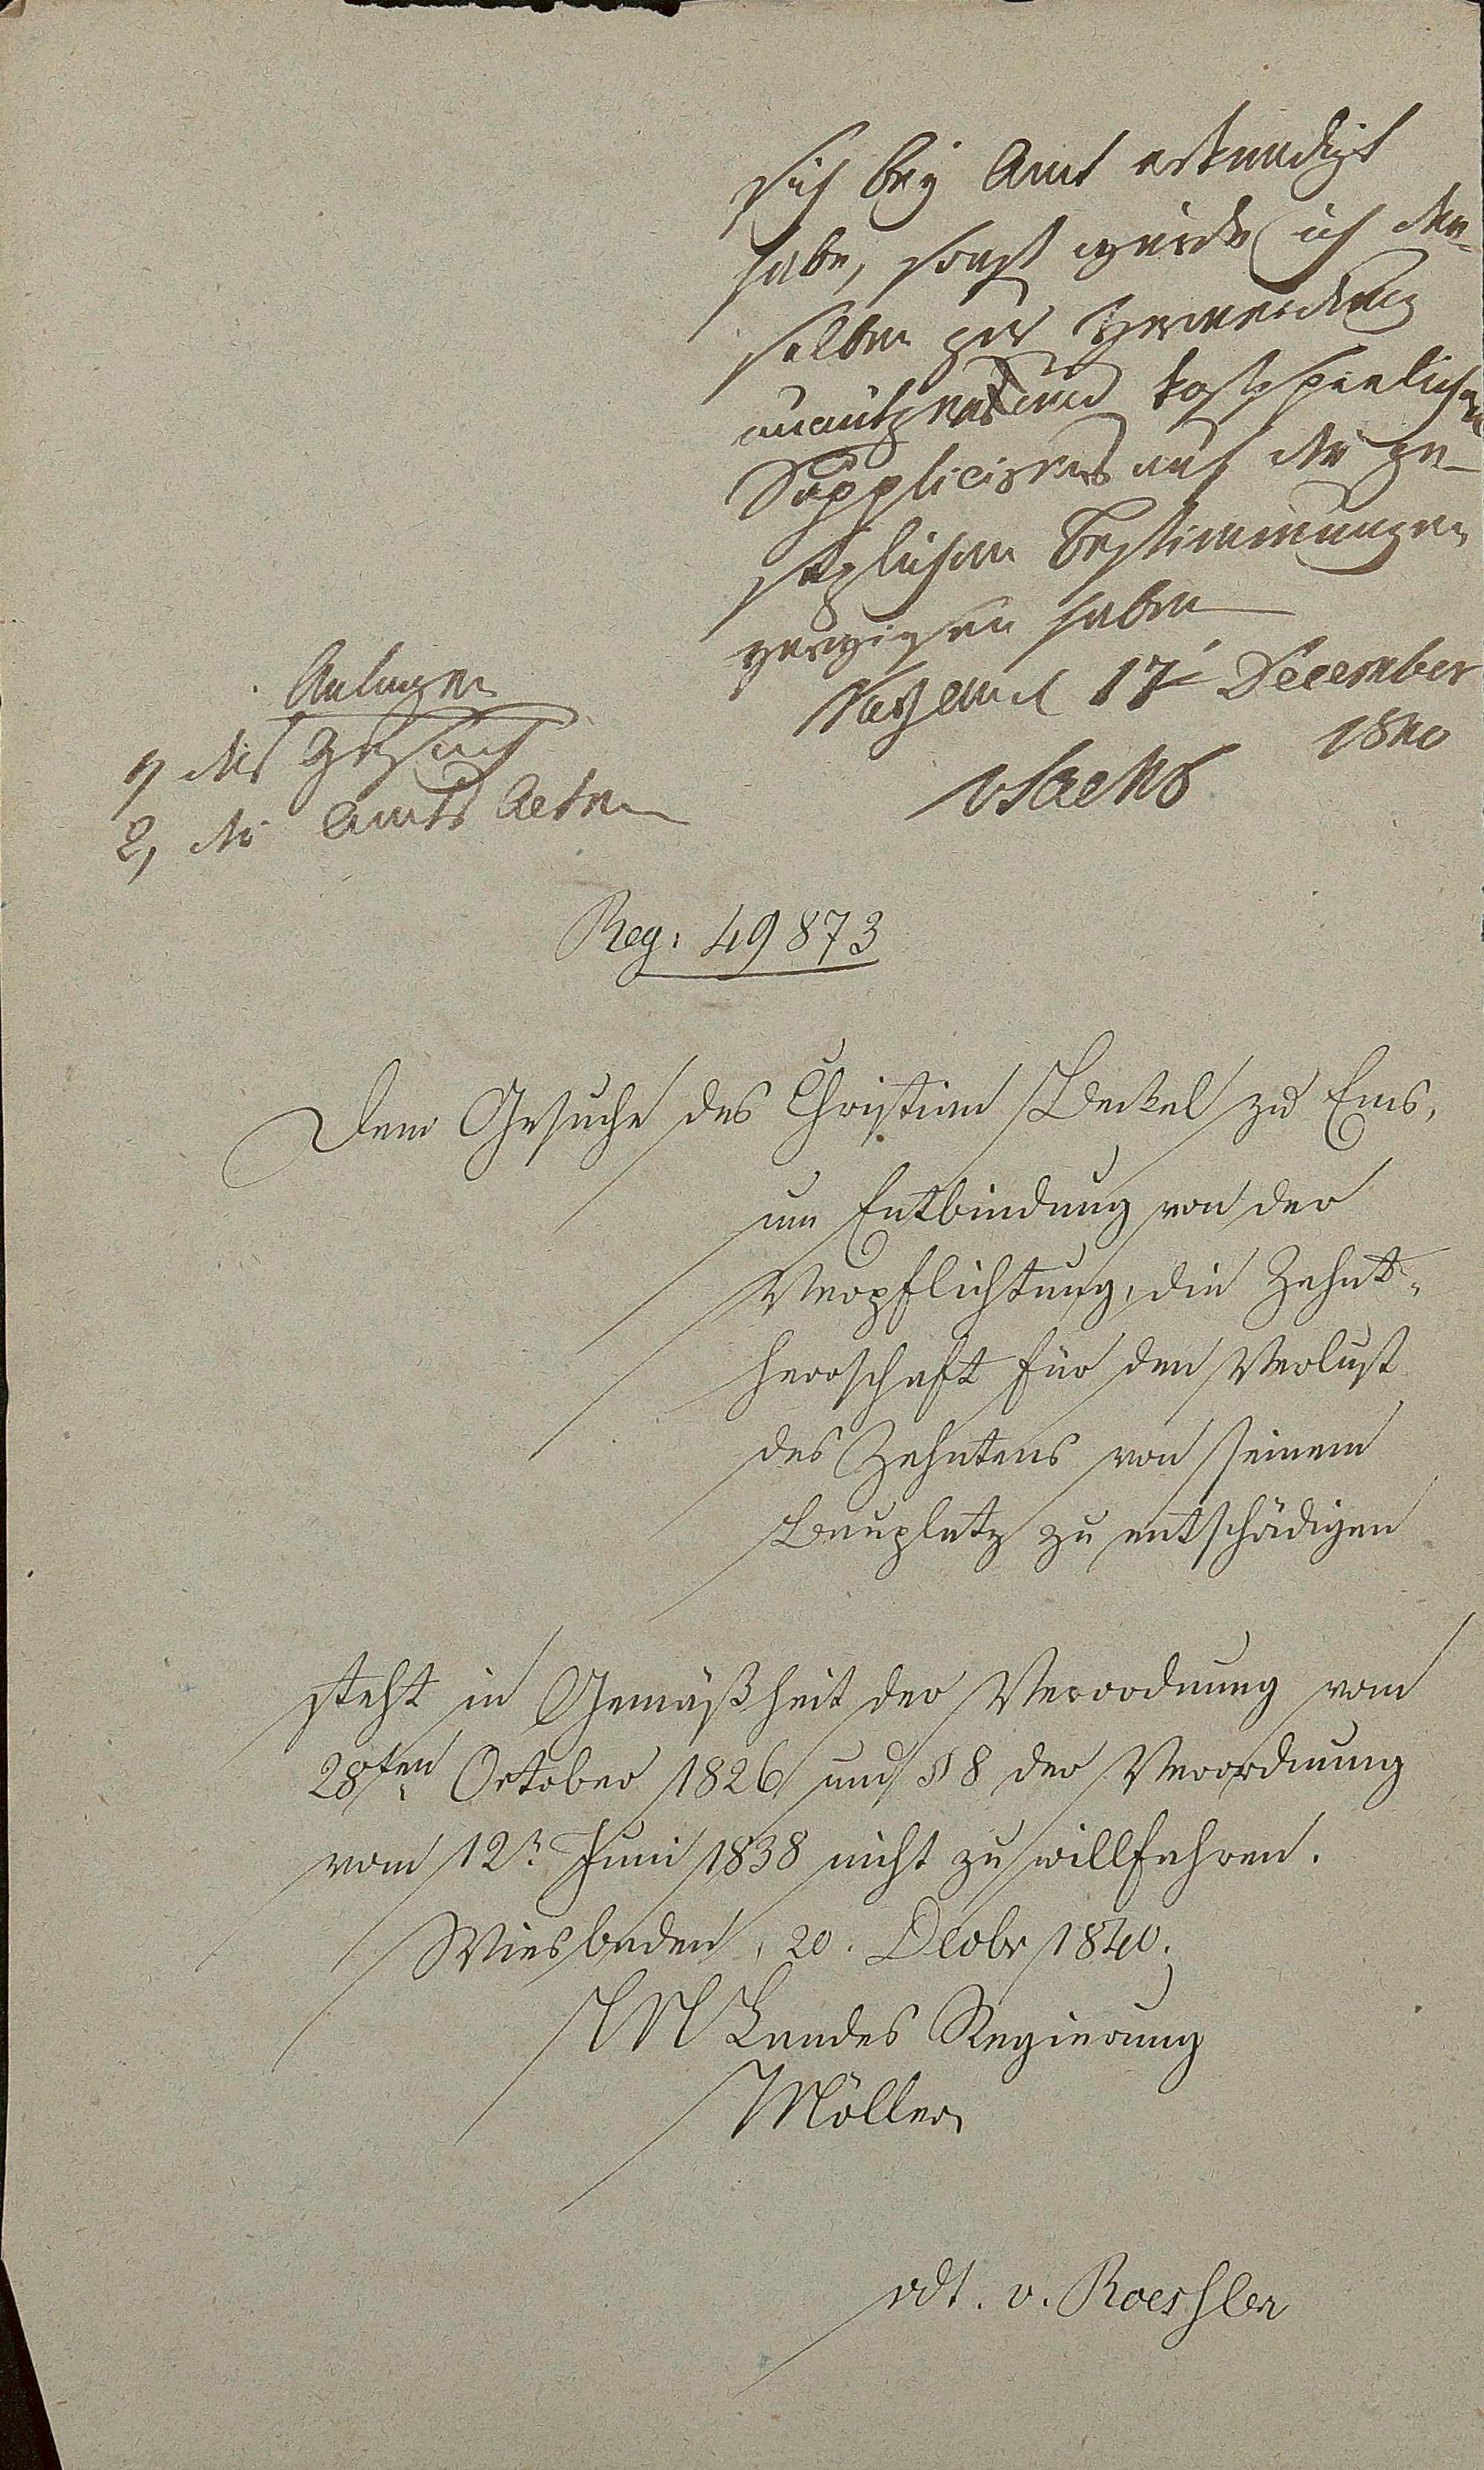 sich bey Amt erkundigt
habe, sonst würde ich den-
selben zur Vermeidung
unnützen und kostspielichen
Supplicirens auf die ge-
setzlichen Bestimmungen
verwiesen haben
Nassau d 17ͭ December
1840
Anlagen
1, das Gesuch
2, die Amts Acten
Reg. 49873
Dem Gesuche des Christian Beckel zu Ems,
um Entbindung von der
Verpflichtung, die Zehnt-
herrschaft für den Verlust
des Zehntens von seinem
Bauplatz zu entschädigen
steht in Gemäßheit der Verordnung vom
28ten October 1826 und § 8 der Verordnung
vom 12n Juni 1838 nicht zu willfahren.
Wiesbaden, 20. Decbr 1840.
Landes Regierung
Möller
vdt. v. Roessler